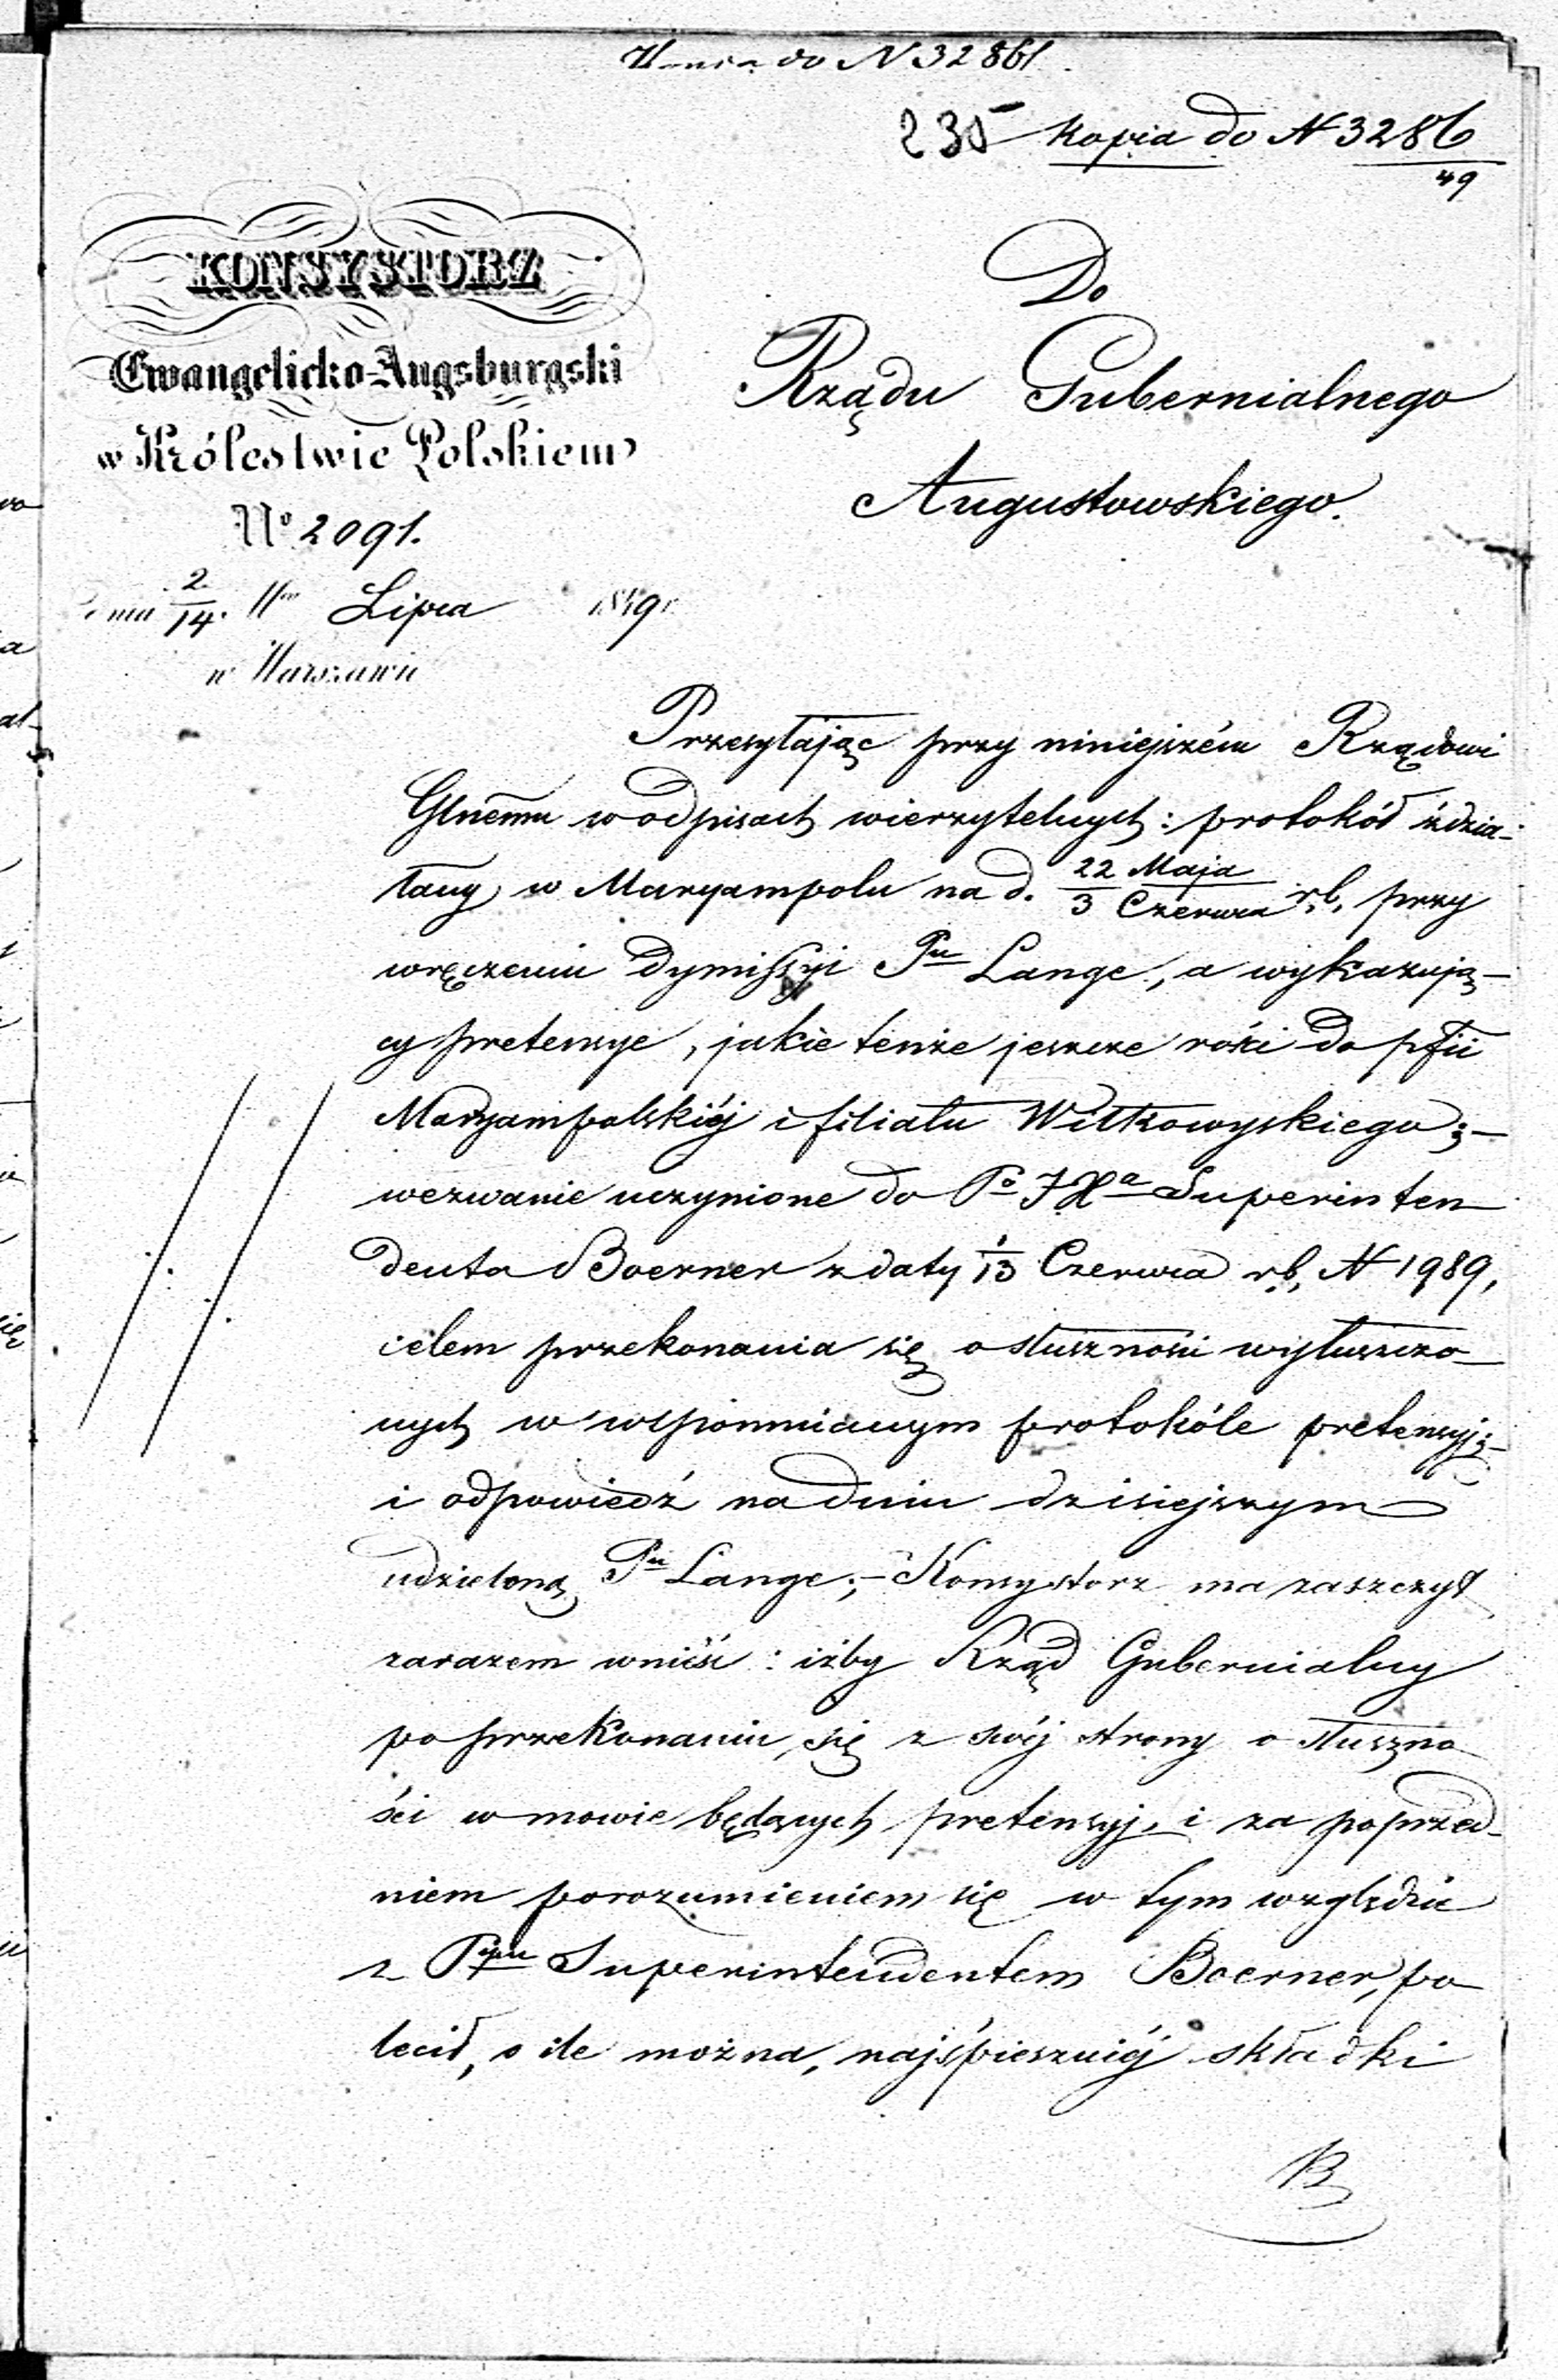 do N 32861
235 kopia do N 3286
49
KONSYSTORZ
Ewangelicko-Augsburgski
w Królestwie Polskiem
Nº 2091.
dnia 2/14. Lipca 1849 r
w Warszawie
Do
Rządu Gubernialnego
Augustowskiego.
Przesyłając przy niniejszém Rządowi
Glnemu w odpisach wierzytelnych: protokół zdzia-
łany w Maryampolu na d. 22 Maja/3 Czerwca r.b. przy
wręczeniu dymissyi Pu Lange, a wykazują-
cy pretensye, jakie tenże jeszcze rości do pfii
Maryampolskiéj i filiału Wiłkowyskiego;-
wezwanie uczynione do Po JXa Superinten
denta Boerner z daty 1/13 Czerwca r.b. N 1989,
celem przekonania się o słuszności wyłuszczo-
nych w wspomnianym protokóle pretensyj;-
i odpowiedź na dniu dzisiejszym
udzieloną Pu Lange;- Konsystorz ma zaszczyt
zarazem wnieść: iżby Rząd Gubernialny
po przekonaniu się z swéj strony o słuszno
ści w mowie będących pretensyj, i za poprzed-
niem porozumieniem się w tym względzie
z Pym Superintendentem Boerner, po
lecił, o ile można, najśpieszniéj składki
B